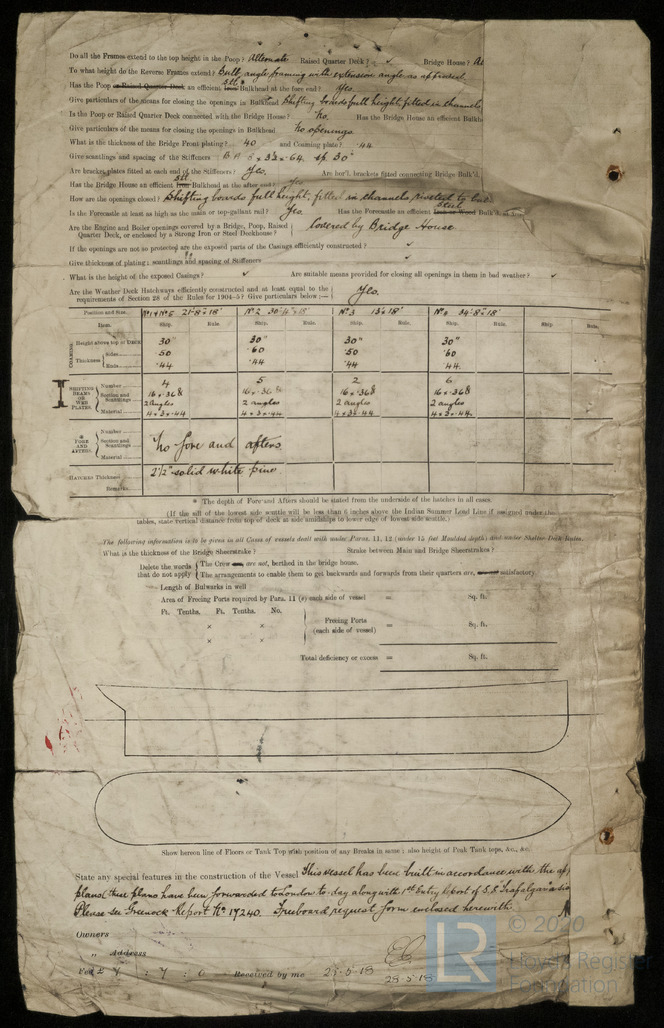 Do all the Frames extend to the top height in the Poop? Alternate Raised Quarter Deck? ✓ Bridge House?
To what height do the Reverse Frames extend? Bulb angle framing with extension angle as approved.
Has the Poop or Raised Quarter Deck an efficient Iron Stl Bulkhead at the fore end? Yes.
Give particulars of the means for closing the openings in Bulkhead Shifting boards full height, fitted in channels,
Is the Poop or Raised Quarter Deck connected with the Bridge House? No. Has the Bridge House an efficient Bulkh
Give particulars of the means for closing the openings in Bulkhead No openings.
What is the thickness of the Bridge Front plating? .40 and Coaming plate? .44
Give scantlings and spacing of the Stiffeners
Are brackets plates fitted at each end of the Stiffeners? Yes. Are hor'l. brackets fitted connecting Bridge Bulk'd.
Has the Bridge House an efficient Iron Stl Bulkhead at the after end? Yes
How are the openings closed? Shifting boards full height, fitted in channels riveted to
Is the Forecastle at least as high as the main or top-gallant rail? Yes. Has the Forecastle an efficient Iron or Wood Steel Bulk'd. at
Are the Engine and Boiler openings covered by a Bridge, Poop, Raised Quarter Deck, or enclosed by a Strong Iron or Steel Deckhouse? Covered by Bridge House
If the openings are not so protected are the exposed parts of the Casings efficiently constructed? ✓
Give thickness of plating; scantlings and spacing of Stiffeners ✓
What is the height of the exposed Casings? ✓ Are suitable means provided for closing all openings in them in bad weather? ✓
Are the Weather Deck Hatchways efficiently constructed and at least equal to the requirements of Section 28 of the Rules for 1904-5? Give particulars below:— Yes.
Position and Size. No 1 & No 5 21'-8" x 18' No 2 30'-4" x 18' No 3 13' x 18' No 4 34'-8" x 18'
Item. Ship. Rule. Ship. Rule. Ship. Rule. Ship. Rule. Ship. Rule.
COAMING Height above top of DECK 30" 30" 30" 30"
Thickness Sides .50 .60 .50 .60
Ends .44 .44 .44 .44
SHIFTING BEAMS OR WEB PLATES. Number 4 5 2 6
Section and Scantlings 16 x .368 16 x .36 16 x .368 16 x .368
2 angles 2 angles 2 angles 2 angles
Material 4 x 3 x .44 4 x 3 x .44 4 x 3 x .44 4 x 3 x .44
* FORE AND AFTERS. Number
Section and Scantlings No fore and afters
Material
HATCHES Thickness 2½" solid white pine
Remarks
* The depth of Fore and Afters should be stated from the underside of the hatches in all cases.
(If the sill of the lowest side scuttle will be less than 6 inches above the Indian Summer Load Line if assigned under the
tables, state vertical distance from top of deck at side amidships to lower edge of lowest side scuttle.)
The following information is to be given in all Cases of vessels dealt with under Paras. 11, 12 (under 15 feet Moulded depth) and under Shelter Deck Rules.
What is the thickness of the Bridge Sheerstrake? Strake between Main and Bridge Sheerstrakes?
Delete the words that do not apply
The Crew are, are not, berthed in the bridge house.
The arrangements to enable them to get backwards and forwards from their quarters are, satisfactory.
Length of Bulwarks in well
Area of Freeing Ports required by Para. 11 (e) each side of vessel = Sq. ft.
Ft. Tenths. Ft. Tenths. No.
× ×
Freeing Ports (each side of vessel) = Sq. ft.
× ×
Total deficiency or excess = Sq. ft.
Show hereon line of Floors or Tank Top with position of any Breaks in same; also height of Peak Tank tops, &c., &c.
State any special features in the construction of the Vessel This vessel has been built in accordance with the
plans (these plans have been forwarded to London to-day along with 1st Entry Report of S.S. Trafalgar
Please see Greenock Report No 17240. Freeboard request form enclosed herewith.
Owners
„ Address
Fee £ 7 : 7 : 0 Received by me 28-5-18
28-5-18
© 2020
LR
Lloyd's Register
Foundation